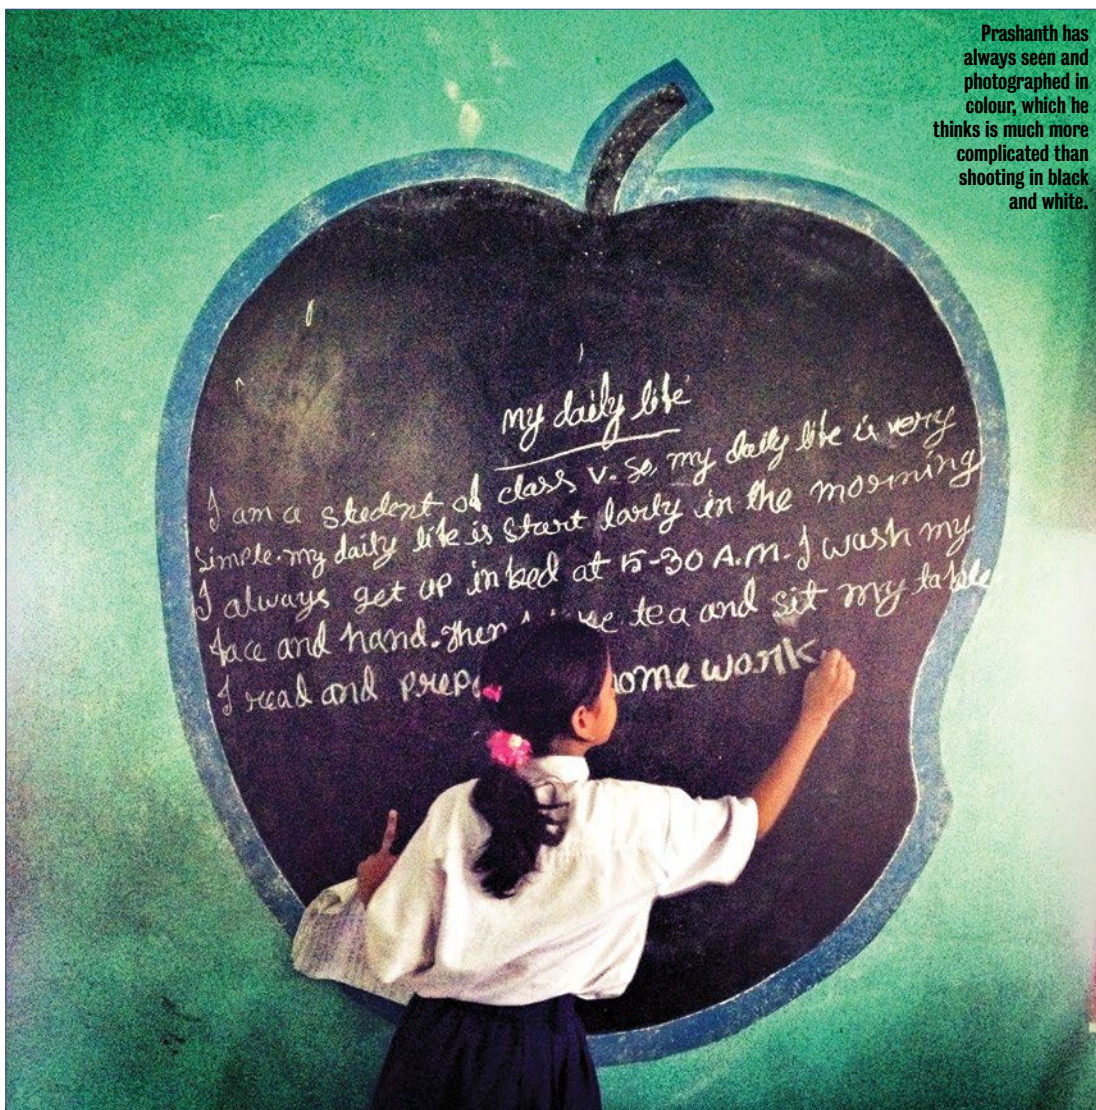 Prashanth has
always seen and
photographed in
colour, which he
thinks is much more
complicated than
shooting in black
and white.
my daily life
I am a student of class V. So, my daily life is very
simple. my daily life is start larly in the morning
I always get up in bed at 5-30 A.M. I wash my
face and hand. Then tea and sit my table
I read and home work